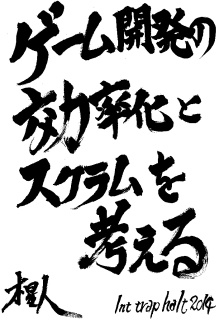 ゲーム開発の
効率化と
スクラムを
考える
Int trap halt 2014